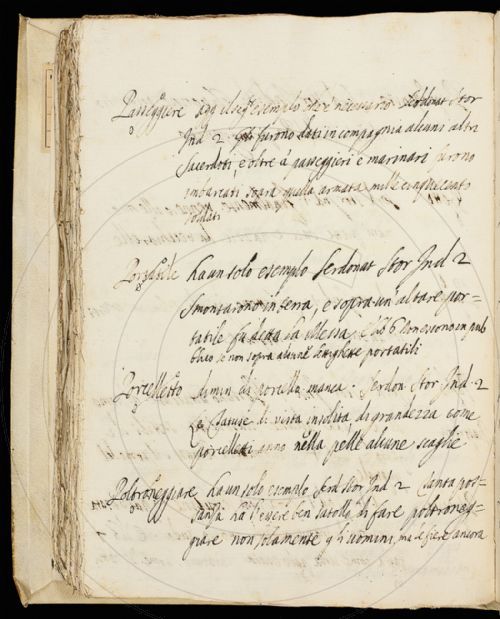 Passeggiere agg. il seg.te esempio che è necessario Serdonat Stor
Ind 2 furono dati in compagnia alcuni altri
Sacerdoti, e oltre a passeggieri e marinari furono
imbarcati sopra quella armata mille cinquecento
soldati
Portatile ha un solo esempio Serdonat Stor Ind 2
Smontarono in terra, e sopra un altare por=
tatile fu detta la Messa. e
portatili
Porcelletto dimin di porcello manca. Serdon Stor Ind. 2
di vista insolita di grandezza come
porcelletti anno nella pelle alcune scaglie
Poltroneggiare ha un solo esempio Serd Stor Ind 2 Tanta pos=
sanza ha l'essere ben satollo di fare poltroneg=
giare non solamente gli uomini, ma le fiere ancora